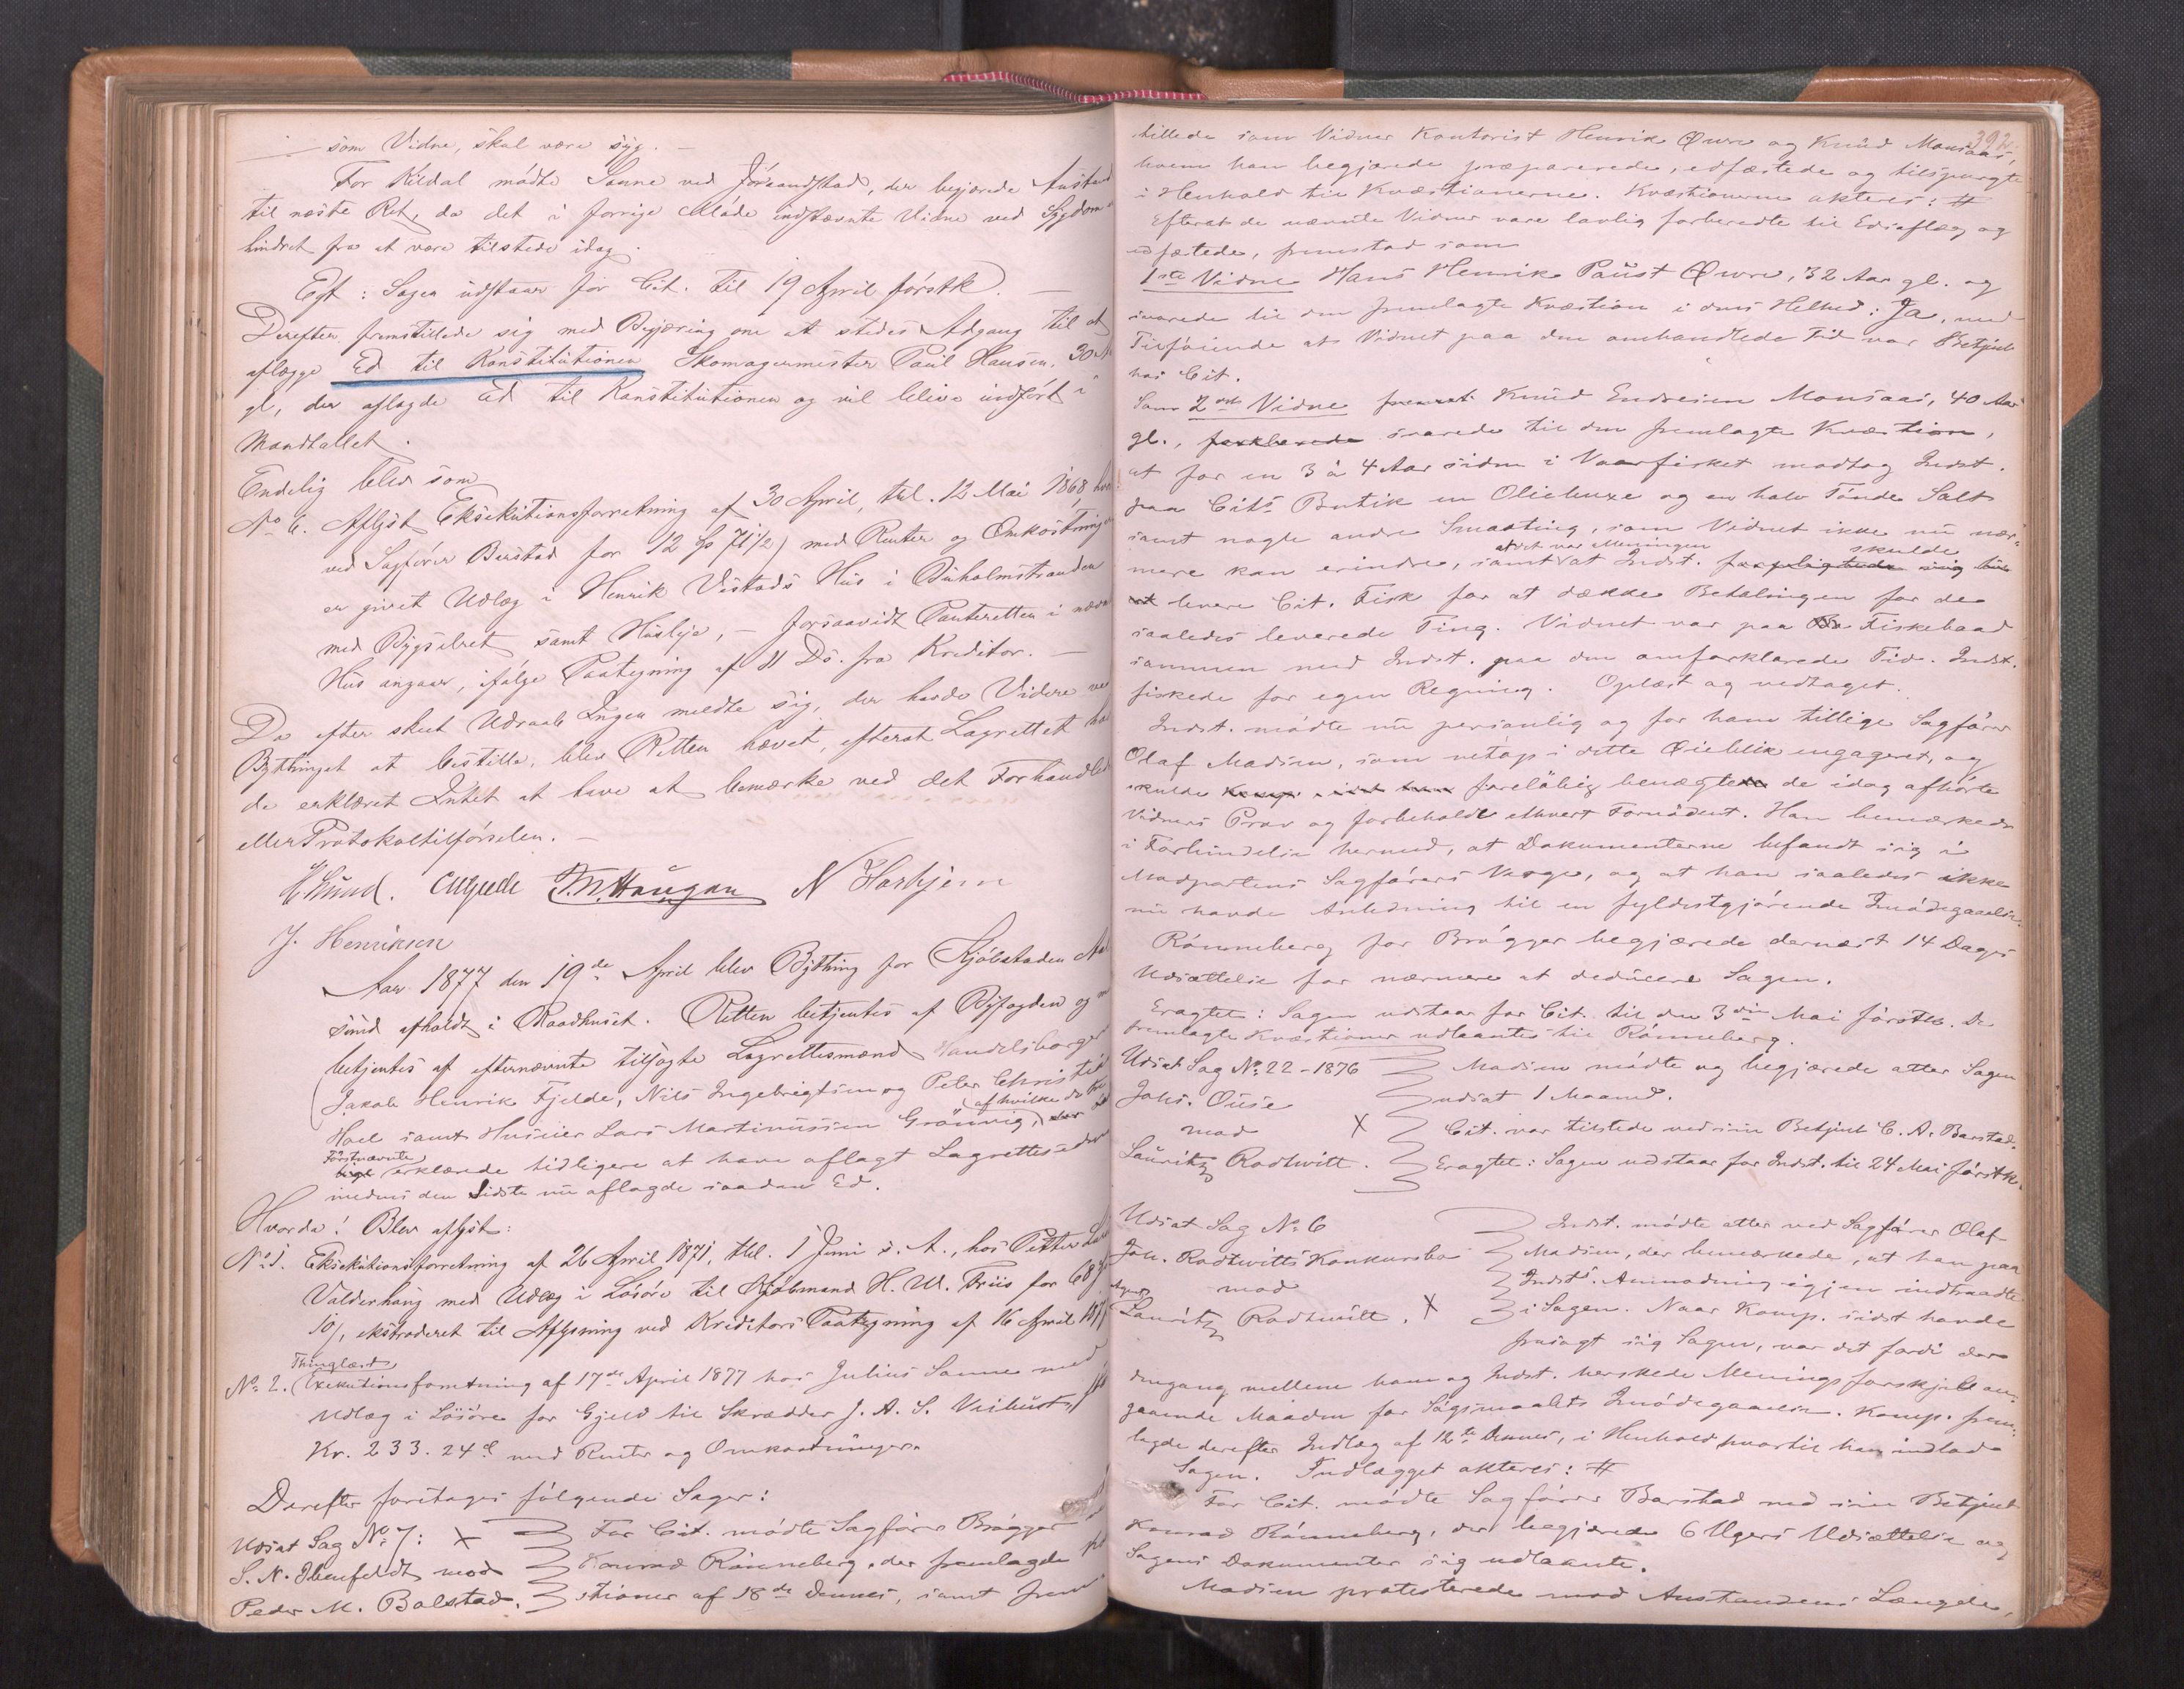 som Vidne, skal være syg. –
For Kildal mødte Sanne ved Jørgandstad, der begjærede Anstand
til næste Ret, da det i forrige Møde indstævnte Vidne ved Sygdom er
hindret fra at være tilstede idag.
Egt: Sagen udstaar for Cit. til 19 April førstk. –
Derefter fremstillede sig med Begjæring om at stedes Adgang til at
aflægge Ed til Konstitutionen Skomagermester Paul Hansen, 30 A
gl, der aflagde Ed til Konstitutionen og vil blive indført i
Mandtallet.
Endelig blev som
No 6. Aflyst Eksekutionsforretning af 30 April, thl. 12 Mai 1868, hvor
ved Sagfører Barstad for 12 Sp 71 1/2 β med Renter og Omkostninger
er givet Udlæg i Henrik Vestads Hus i Buholmstranden
med Bygselret samt Husleje, – forsaavidt Panteretten i nævnte
Hus angaar, ifølge Paategning af 11 Ds. fra Kreditor. –
Da efter skeet Udraab Ingen meldte sig, der havde Videre ved
Bythinget at bestille, blev Retten hævet, efterat Lagrettet hav
de erklæret Intet at have at bemærke ved det Forhandlede
eller Protokoltilførselen. –
H. Lund. T. M. Haugan N Harbjern
J. Henriksen
Aar 1877 den 19de April blev Bything for Kjøbstaden Aale
sund afholdt i Raadhuset. Retten betjentes af Byfogden og med
betjentes af efternævnte tilsagte Lagrettesmænd Handelsborger
Jakob Henrik Fjelde, Nils Ingebrigtsen og Peter Christian
Hoel samt Huseier Lars Martinussen Grønvig, af hvilke de tre
Førstnævnte erklærede tidligere at have aflagt Lagrettes-ed
imedens den Sidste nu aflagde saadan Ed.
Hvorda! Blev aflyst:
No 1. Eksekutionsforretning af 26 April 1871, thl. 1 Juni s. A., hos Petter
Valderhaug med Udlæg i Løsøre til Kjøbmand H. W. Friis for 68
10 β, ekstraderet til Aflysning ved Kreditors Paategning af 16 April 1877
Thinglæst
No 2. Exekutionsforretning af 17de April 1877 hos Julius Sanne med
Udlæg i Løsøre for Gjeld til Skrædder J. A. S. Veibust
Kr. 233. 24 Ø med Renter og Omkostninger.
Derefter foretages følgende Sager:
Udsat Sag No 7: X For Cit. mødte Sagfører Brøgger ved
S. N. Ibenfeldt mod Konrad Rønneberg, der fremlagde kvæ
Peder M. Bolstad. stioner af 18de Dennes, samt frem-
392
stillede som Vidner Kontorist Henrik Øwre og Knud Monsaas,
hvem han begjærede præparerede, edfæstede og tilspurgte
i Henhold til Kvæstionerne. Kvæstionerne akteres: #
Efterat de nævnte Vidner vare lovlig forberedte til Edsaflæg og
edfæstede, fremstod som
1ste Vidne Hans Henrik Paust Øwre, 32 Aar gl. og
svarede til den fremlagte Kvæstion i dens Helhed: Ja, med
Tilføiende at Vidnet paa den omhandlede Tid var Betjent
hos Cit.
Som 2det Vidne fremst. Knud Endresen Monsaas, 40 Aar
gl., forklarede svarede til den fremlagte Kvæstion,
at for en 3 à 4 Aar siden i Vaarfisket modtog Indst.
paa Cits Butik en Oliebuxe og en halv Tønde Salt
samt nogle andre Smaating, som Vidnet ikke nu nær-
mere kan erindre, samt at det var Meningen at Indst. forpligtede sig til skulde
levere Cit. Fisk for at dække Betalingen for de
saaledes leverede Ting. Vidnet var paa Fiskebaad
sammen med Indst. paa den omforklarede Tid. Indst.
fiskede for egen Regning. Oplæst og vedtaget.
Indst. mødte nu personlig og for ham tillige Sagfører
Olaf Madsen, som netop i dette Øieblik engageret, og
skulde foreløbig benægte de idag afhørte
Vidners Prov og forbeholdt ethvert Fornødent. Han bemærkede
i Forbindelse hermed, at Dokumenterne befandt sig i
Modpartens Sagførers Værge, og at han saaledes ikke
nu havde Anledning til en fyldestgjørende Imødegaaelse.
Rønneberg for Brøgger begjærede dernæst 14 Dages
Udsættelse for nærmere at deducere Sagen.
Eragtet: Sagen udstaar for Cit. til den 3die Mai førstk. De
fremlagte Kvæstioner udlaantes til Rønneberg.
Udsat Sag No 22 – 1876 Madsen mødte og begjærede atter Sagen
Johs. Ouse udsat 1 Maaned.
mod X Cit. var tilstede ved sin Betjent C. A. Barstad.
Lauritz Rodtwitt. Eragtet: Sagen udstaar for Indst. til 24 Mai førstk.
Udsat Sag No 6 Indst. mødte atter ved Sagfører Olaf
Joh. Rodtwitts Konkursbo Madsen, der bemærkede, at han paa
mod Indsts. Anmodning igjen indtraadte
Lauritz Rodtwitt. X i Sagen. Naar Komp. sidst havde
frasagt sig Sagen, var det fordi der
dengang mellem ham og Indst. herskede Meningsforskjel an-
gaaende Maaden for Søgsmaalets Imødegaaelse. Komp. frem-
lagde derefter Indlæg af 12te Dennes, i Henhold hvortil han indlod
Sagen. Indlægget akteres: #
For Cit. mødte Sagfører Barstad ved sin Betjent
Konrad Rønneberg, der begjærede 6 Ugers Udsættelse og
Sagens Dokumenter sig udlaante.
Madsen protesterede mod Anstandens Længde,